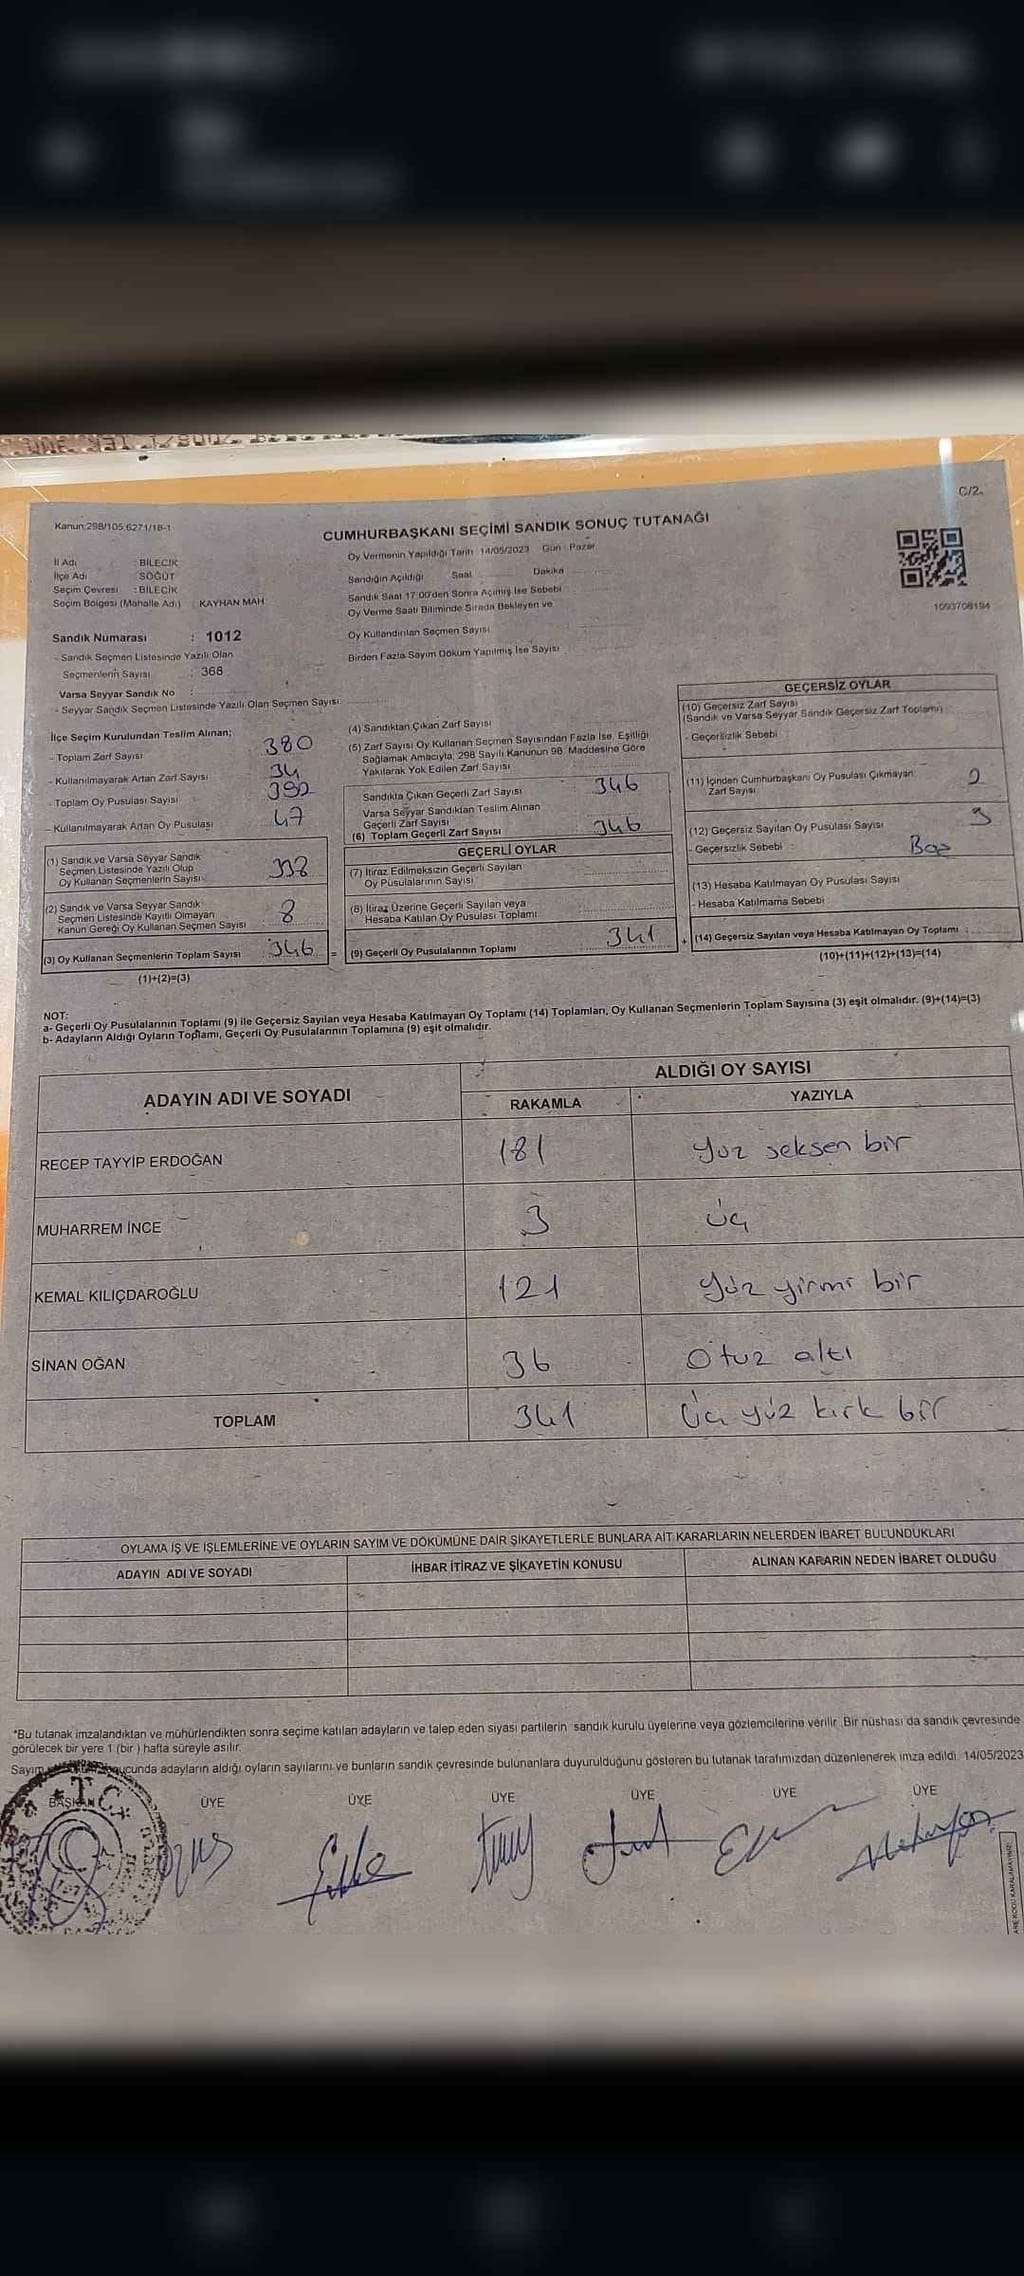 C/2.
Kanun:298/105,6271/18-1
CUMHURBAŞKANI SEÇİMİ SANDIK SONUÇ TUTANAĞI
Oy Vermenin Yapıldığı Tarih 14/05/2023 Gün Pazar
İl Adı : BİLECİK
İlçe Adı : SÖĞÜT
Seçim Çevresi : BİLECİK
Seçim Bölgesi (Mahalle Adı) : KAYHAN MAH
Sandığın Açıldığı Saat Dakika
Sandık Saat 17:00'den Sonra Açılmış İse Sebebi
Oy Verme Saati Bitiminde Sırada Bekleyen ve
Oy Kullandırılan Seçmen Sayısı
Birden Fazla Sayım Döküm Yapılmış İse Sayısı
1093708194
Sandık Numarası : 1012
- Sandık Seçmen Listesinde Yazılı Olan
Seçmenlerin Sayısı : 368
Varsa Seyyar Sandık No :
- Seyyar Sandık Seçmen Listesinde Yazılı Olan Seçmen Sayısı:
İlçe Seçim Kurulundan Teslim Alınan;
- Toplam Zarf Sayısı 380
- Kullanılmayarak Artan Zarf Sayısı 34
- Toplam Oy Pusulası Sayısı
- Kullanılmayarak Artan Oy Pusulası 47
(1) Sandık ve Varsa Seyyar Sandık
Seçmen Listesinde Yazılı Olup
Oy Kullanan Seçmenlerin Sayısı 338
(2) Sandık ve Varsa Seyyar Sandık
Seçmen Listesinde Kayıtlı Olmayan
Kanun Gereği Oy Kullanan Seçmen Sayısı 8
(3) Oy Kullanan Seçmenlerin Toplam Sayısı 346 =
(1)+(2)=(3)
(4) Sandıktan Çıkan Zarf Sayısı
(5) Zarf Sayısı Oy Kullanan Seçmen Sayısından Fazla İse, Eşitliği
Sağlamak Amacıyla, 298 Sayılı Kanunun 98. Maddesine Göre
Yakılarak Yok Edilen Zarf Sayısı
Sandıkta Çıkan Geçerli Zarf Sayısı 346
Varsa Seyyar Sandıktan Teslim Alınan
Geçerli Zarf Sayısı
(6) Toplam Geçerli Zarf Sayısı 346
GEÇERLİ OYLAR
(7) İtiraz Edilmeksizin Geçerli Sayılan
Oy Pusulalarının Sayısı
(8) İtiraz Üzerine Geçerli Sayılan veya
Hesaba Katılan Oy Pusulası Toplamı
(9) Geçerli Oy Pusulalarının Toplamı 341 +
GEÇERSİZ OYLAR
(10) Geçersiz Zarf Sayısı
(Sandık ve Varsa Seyyar Sandık Geçersiz Zarf Toplamı)
- Geçersizlik Sebebi
(11) İçinden Cumhurbaşkanı Oy Pusulası Çıkmayan 2
Zarf Sayısı
(12) Geçersiz Sayılan Oy Pusulası Sayısı 3
- Geçersizlik Sebebi
(13) Hesaba Katılmayan Oy Pusulası Sayısı
- Hesaba Katılmama Sebebi
(14) Geçersiz Sayılan veya Hesaba Katılmayan Oy Toplamı :
(10)+(11)+(12)+(13)=(14)
NOT:
a- Geçerli Oy Pusulalarının Toplamı (9) ile Geçersiz Sayılan veya Hesaba Katılmayan Oy Toplamı (14) Toplamları, Oy Kullanan Seçmenlerin Toplam Sayısına (3) eşit olmalıdır. (9)+(14)=(3)
b- Adayların Aldığı Oyların Toplamı, Geçerli Oy Pusulalarının Toplamına (9) eşit olmalıdır.
ADAYIN ADI VE SOYADI
ALDIĞI OY SAYISI
RAKAMLA YAZIYLA
RECEP TAYYİP ERDOĞAN 181 Yüz seksen bir
MUHARREM İNCE 3 üç
KEMAL KILIÇDAROĞLU 121 Yüz yirmi bir
SİNAN OĞAN 36 Otuz altı
TOPLAM 341 Üç yüz kırk bir
OYLAMA İŞ VE İŞLEMLERİNE VE OYLARIN SAYIM VE DÖKÜMÜNE DAİR ŞİKAYETLERLE BUNLARA AİT KARARLARIN NELERDEN İBARET BULUNDUKLARI
ADAYIN ADI VE SOYADI İHBAR İTİRAZ VE ŞİKAYETİN KONUSU ALINAN KARARIN NEDEN İBARET OLDUĞU
*Bu tutanak imzalandıktan ve mühürlendikten sonra seçime katılan adayların ve talep eden siyasi partilerin sandık kurulu üyelerine veya gözlemcilerine verilir. Bir nüshası da sandık çevresinde
görülecek bir yere 1 (bir ) hafta süreyle asılır.
Sayım adayların aldığı oyların sayılarını ve bunların sandık çevresinde bulunanlara duyurulduğunu gösteren bu tutanak tarafımızdan düzenlenerek imza edildi. 14/05/2023
BAŞKAN ÜYE ÜYE ÜYE ÜYE ÜYE ÜYE
T.C.